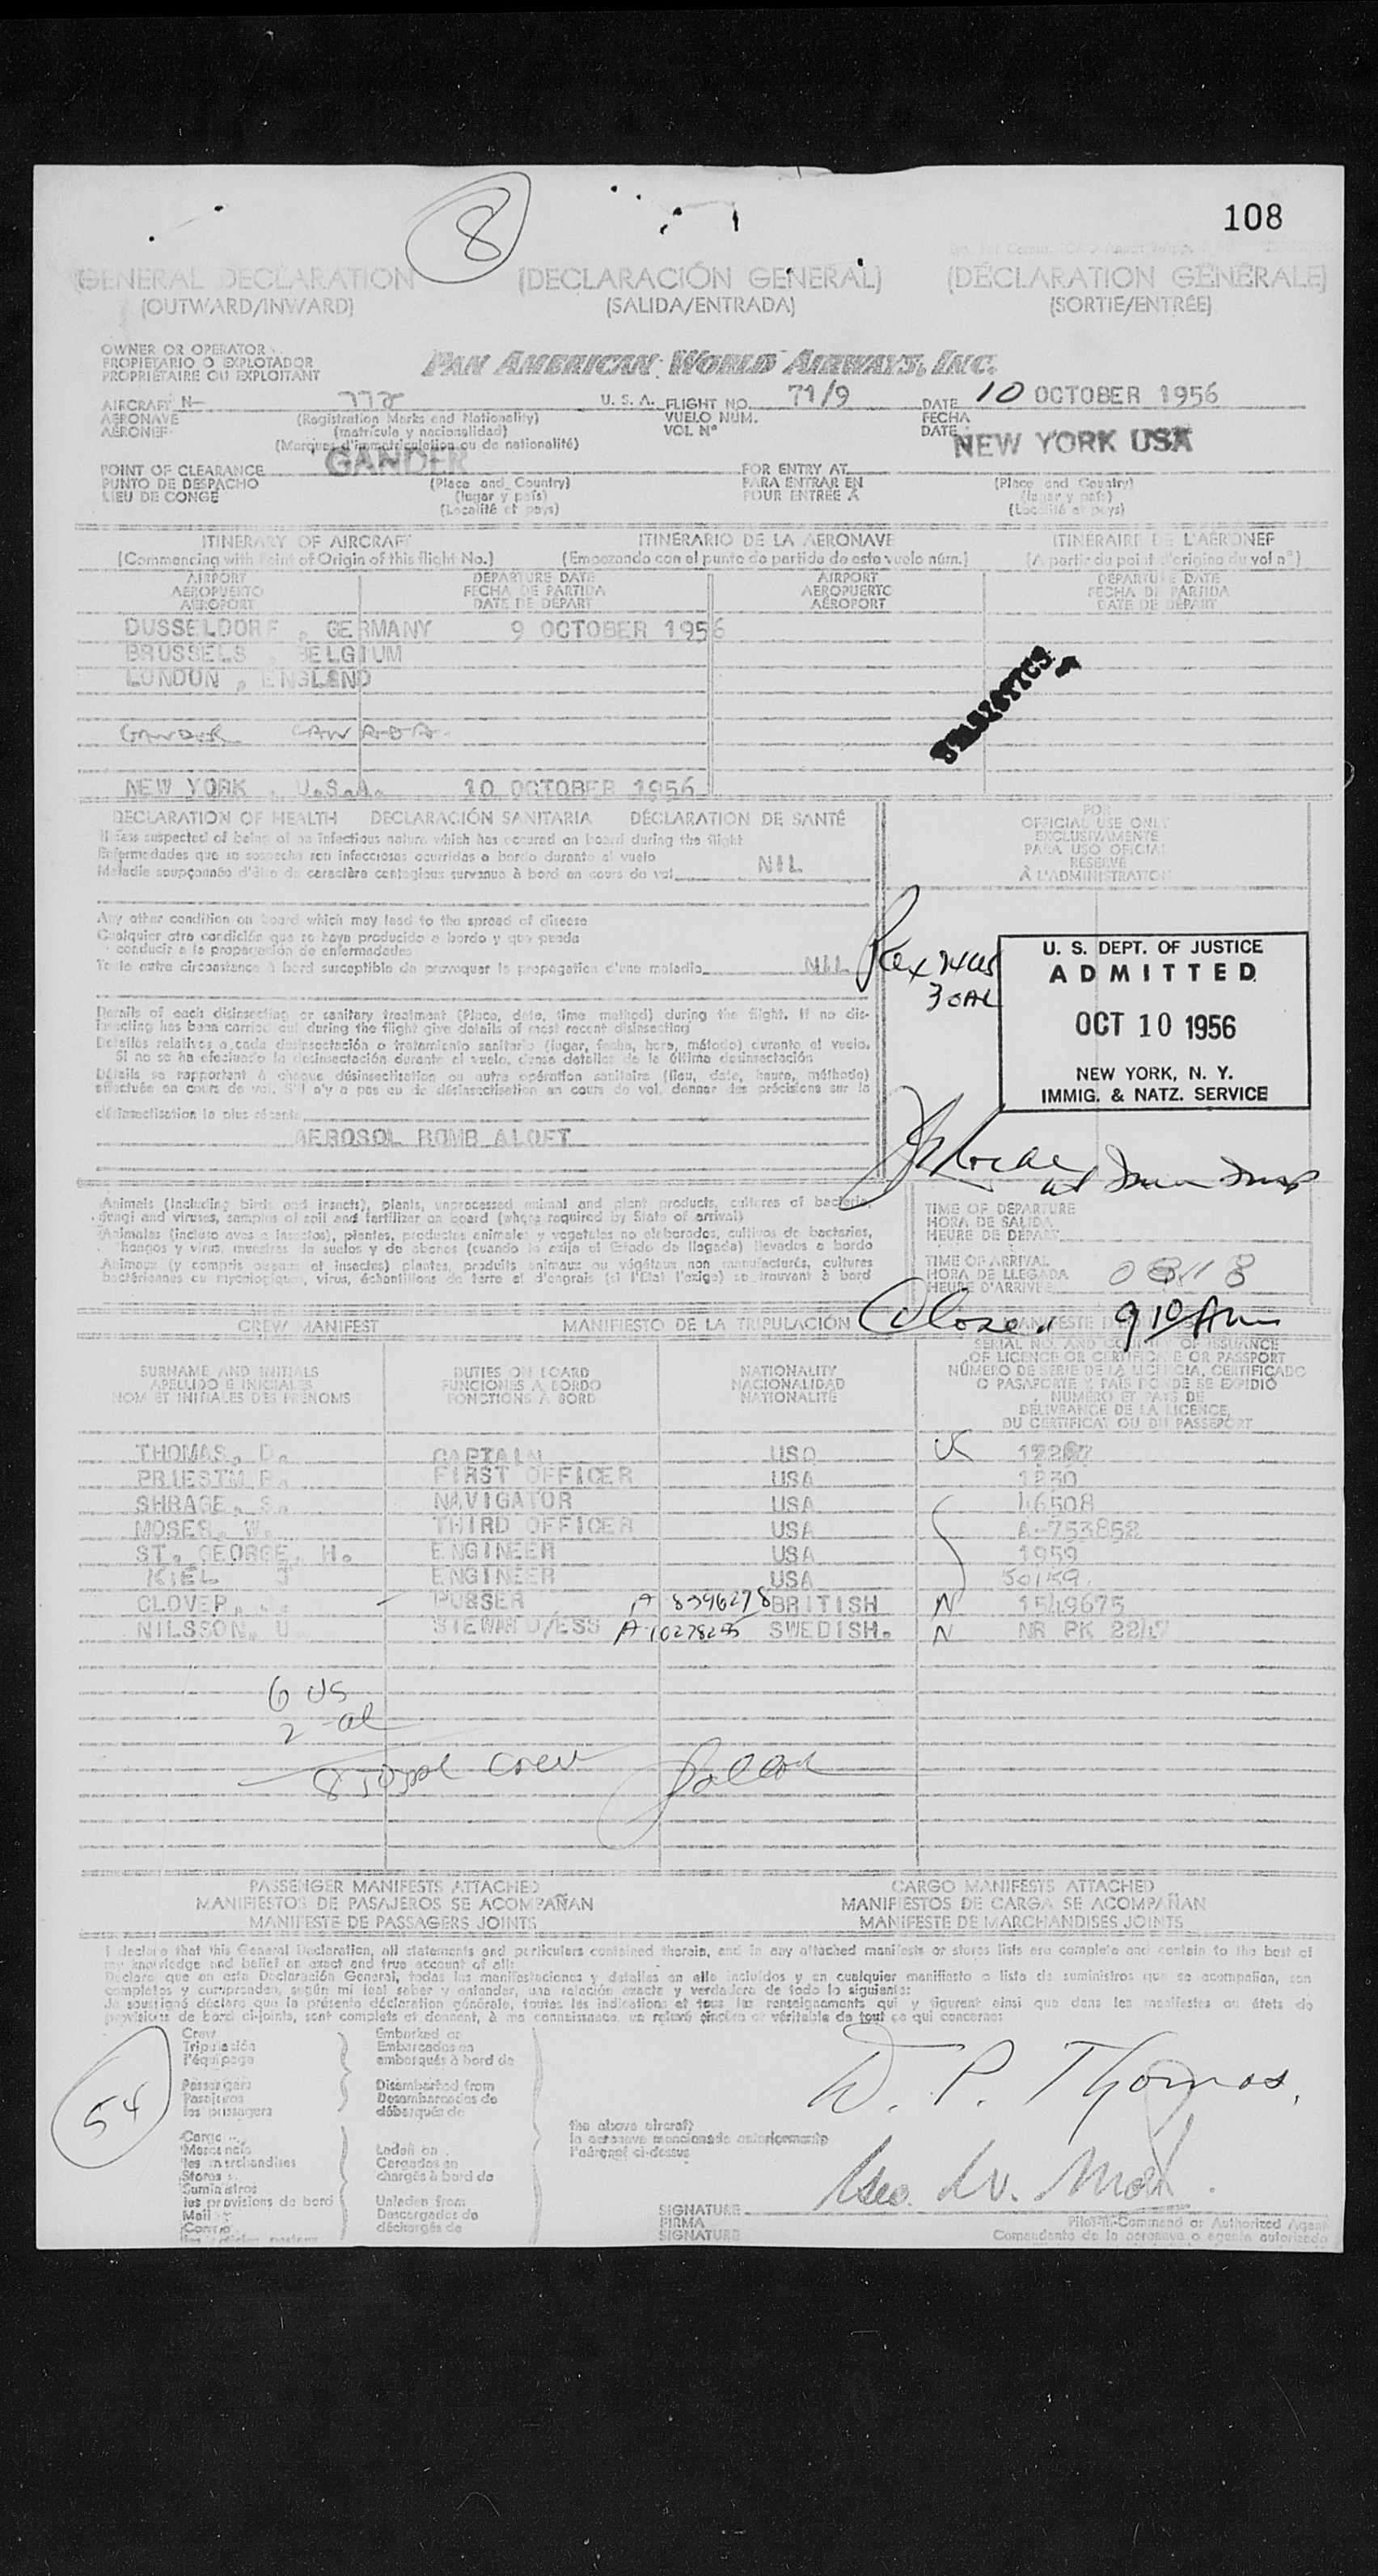 8
108
(GENERAL DECLARATION (DECLARACIÓN GENERAL) (DÉCLARATION GÉNÉRALE)
(OUTWARD/INWARD) (SALIDA/ENTRADA) (SORTIE/ENTRÉE)
OWNER OR OPERATOR
PROPIETARIO O EXPLOTADOR
PROPRIÉTAIRE OU EXPLOITANT
PAN AMERICAN WORLD AIRWAYS, INC.
AIRCRAFT N- U. S. A. FLIGHT NO. 71/9 DATE 10 OCTOBER 1956
AERONAVE (Registration Marks and Nationality) VUELO NUM. FECHA
AÉRONEF (matrícula y nacionalidad) VOL Nº DATE
(Marques d'immatriculation ou de nationalité)
GANDER NEW YORK USA
POINT OF CLEARANCE (Place and Country) FOR ENTRY AT (Place and Country)
PUNTO DE DESPACHO (lugar y país) PARA ENTRAR EN (lugar y país)
LIEU DE CONGÉ (Localité et pays) POUR ENTRÉE À (Localité et pays)
ITINERARY OF AIRCRAFT ITINERARIO DE LA AERONAVE ITINÉRAIRE DE L'AÉRONEF
(Commencing with Point of Origin of this flight No.) (Empezando con el punto de partida de este vuelo núm.) (A partir du point d'origine du vol nº)
AIRPORT DEPARTURE DATE AIRPORT DEPARTURE DATE
AEROPUERTO FECHA DE PARTIDA AEROPUERTO FECHA DE PARTIDA
AÉROPORT DATE DE DÉPART AÉROPORT DATE DE DÉPART
DUSSELDORF , GERMANY 9 OCTOBER 1956
BRUSSELS , BELGIUM
LONDON , ENGLAND
GANDER CANADA
NEW YORK , U.S.A. 10 OCTOBER 1956
DECLARATION OF HEALTH DECLARACIÓN SANITARIA DÉCLARATION DE SANTÉ
Illness suspected of being of an infectious nature which has occured on board during the flight
Enfermedades que se sospecha son infecciosas ocurridas a bordo durante el vuelo
Maladie soupçonnée d'être de caractère contagieux survenue à bord en cours de vol NIL
Any other condition on board which may lead to the spread of disease
Cualquier otra condición que se haya producido a bordo y que pueda
conducir a la propagación de enfermedades
Toute autre circonstance à bord susceptible de provoquer la propagation d'une maladie NIL
Details of each disinsecting or sanitary treatment (Place, date, time method) during the flight. If no dis-
insecting has been carried out during the flight give details of most recent disinsecting
Detalles relativos a cada desinsectación o tratamiento sanitario (lugar, fecha, hora, método) durante el vuelo.
Si no se ha efectuado la desinsectación durante el vuelo, dense detalles de la última desinsectación
Détails se rapportant à chaque désinsectisation ou autre opération sanitaire (lieu, date, heure, méthode)
effectuée en cours de vol. S'il n'y a pas eu de désinsectisation en cours de vol, donner des précisions sur la
désinsectisation la plus récente
AEROSOL BOMB ALOFT
FOR
OFFICIAL USE ONLY
EXCLUSIVAMENTE
PARA USO OFICIAL
RESERVÉ
À L'ADMINISTRATION
U. S. DEPT. OF JUSTICE
ADMITTED
OCT 10 1956
NEW YORK, N. Y.
IMMIG. & NATZ. SERVICE
Animals (including birds and insects), plants, unprocessed animal and plant products, cultures of bacteria,
fungi and viruses, samples of soil and fertilizer on board (where required by State of arrival)
Animales (incluso aves e insectos), plantas, productos animales y vegetales no elaborados, cultivos de bacterias,
hongos y virus, muestras de suelos y de abonos (cuando lo exija el Estado de llegada) llevados a bordo
Animaux (y compris oiseaux et insectes) plantes, produits animaux ou végétaux non manufacturés, cultures
bactériennes ou mycologiques, virus, échantillons de terre et d'engrais (si l'État l'exige) se trouvant à bord
TIME OF DEPARTURE
HORA DE SALIDA
HEURE DE DÉPART
TIME OF ARRIVAL
HORA DE LLEGADA
HEURE D'ARRIVÉE
Closed 9 10 Am
CREW MANIFEST MANIFIESTO DE LA TRIPULACIÓN
SURNAME AND INITIALS DUTIES ON BOARD NATIONALITY SERIAL NO. AND COUNTRY OF ISSUANCE
APELLIDO E INICIALES FUNCIONES A BORDO NACIONALIDAD OF LICENCE OR CERTIFICATE OR PASSPORT
NOM ET INITIALES DES PRÉNOMS FONCTIONS À BORD NATIONALITÉ NÚMERO DE SERIE DE LA LICENCIA, CERTIFICADO
O PASAPORTE Y PAÍS DONDE SE EXPIDIÓ
NUMÉRO ET PAYS DE
DÉLIVRANCE DE LA LICENCE,
DU CERTIFICAT OU DU PASSEPORT
THOMAS, D. CAPTAIN USO US
FIRST OFFICER USA 1230
SHRAGE, S. NAVIGATOR USA 46508
MOSER, W. THIRD OFFICER USA A-753852
ST. GEORGE, H. ENGINEER USA 1959
KIEL J ENGINEER USA 50159
CLOVER, J. PURSER A 8396278 BRITISH N 1549675
NILSSON, U. STEWARD/ESS SWEDISH. N NR PK
6 US
2 - al
8 total crew
PASSENGER MANIFESTS ATTACHED CARGO MANIFESTS ATTACHED
MANIFIESTOS DE PASAJEROS SE ACOMPAÑAN MANIFIESTOS DE CARGA SE ACOMPAÑAN
MANIFESTE DE PASSAGERS JOINTS MANIFESTE DE MARCHANDISES JOINTS
I declare that this General Declaration, all statements and particulars contained therein, and in any attached manifests or stores lists are complete and contain to the best of
my knowledge and belief an exact and true account of all:
Declaro que en esta Declaración General, todas las manifestaciones y detalles en ella incluídos y en cualquier manifiesto o lista de suministros que se acompañan, son
completos y comprenden, según mi leal saber y entender, una relación exacta y verdadera de todo lo siguiente:
Je soussigné déclare que la présente déclaration générale, toutes les indications et tous les renseignements qui y figurent ainsi que dans les manifestes ou états de
provisions de bord ci-joints, sont complets et donnent, à ma connaissance, un relevé sincère et véritable de tout ce qui concerne:
54
Crew Embarked on
Tripulación Embarcados en
l'équipage embarqués à bord de
Passengers Disembarked from
Pasajeros Desembarcados de
les passagers débarqués de
Cargo Laden on
Mercancía Cargados en
les marchandises chargés à bord de
Stores
Suministros
les provisions de bord Unladen from
Mail Descargados de
Correo déchargés de
the above aircraft
la aeronave mencionada anteriormente
l'aéronef ci-dessus
D. P. Thomas.
SIGNATURE
FIRMA
SIGNATURE
Pilot-in-Command or Authorized Agent
Comandante de la aeronave o agente autorizado